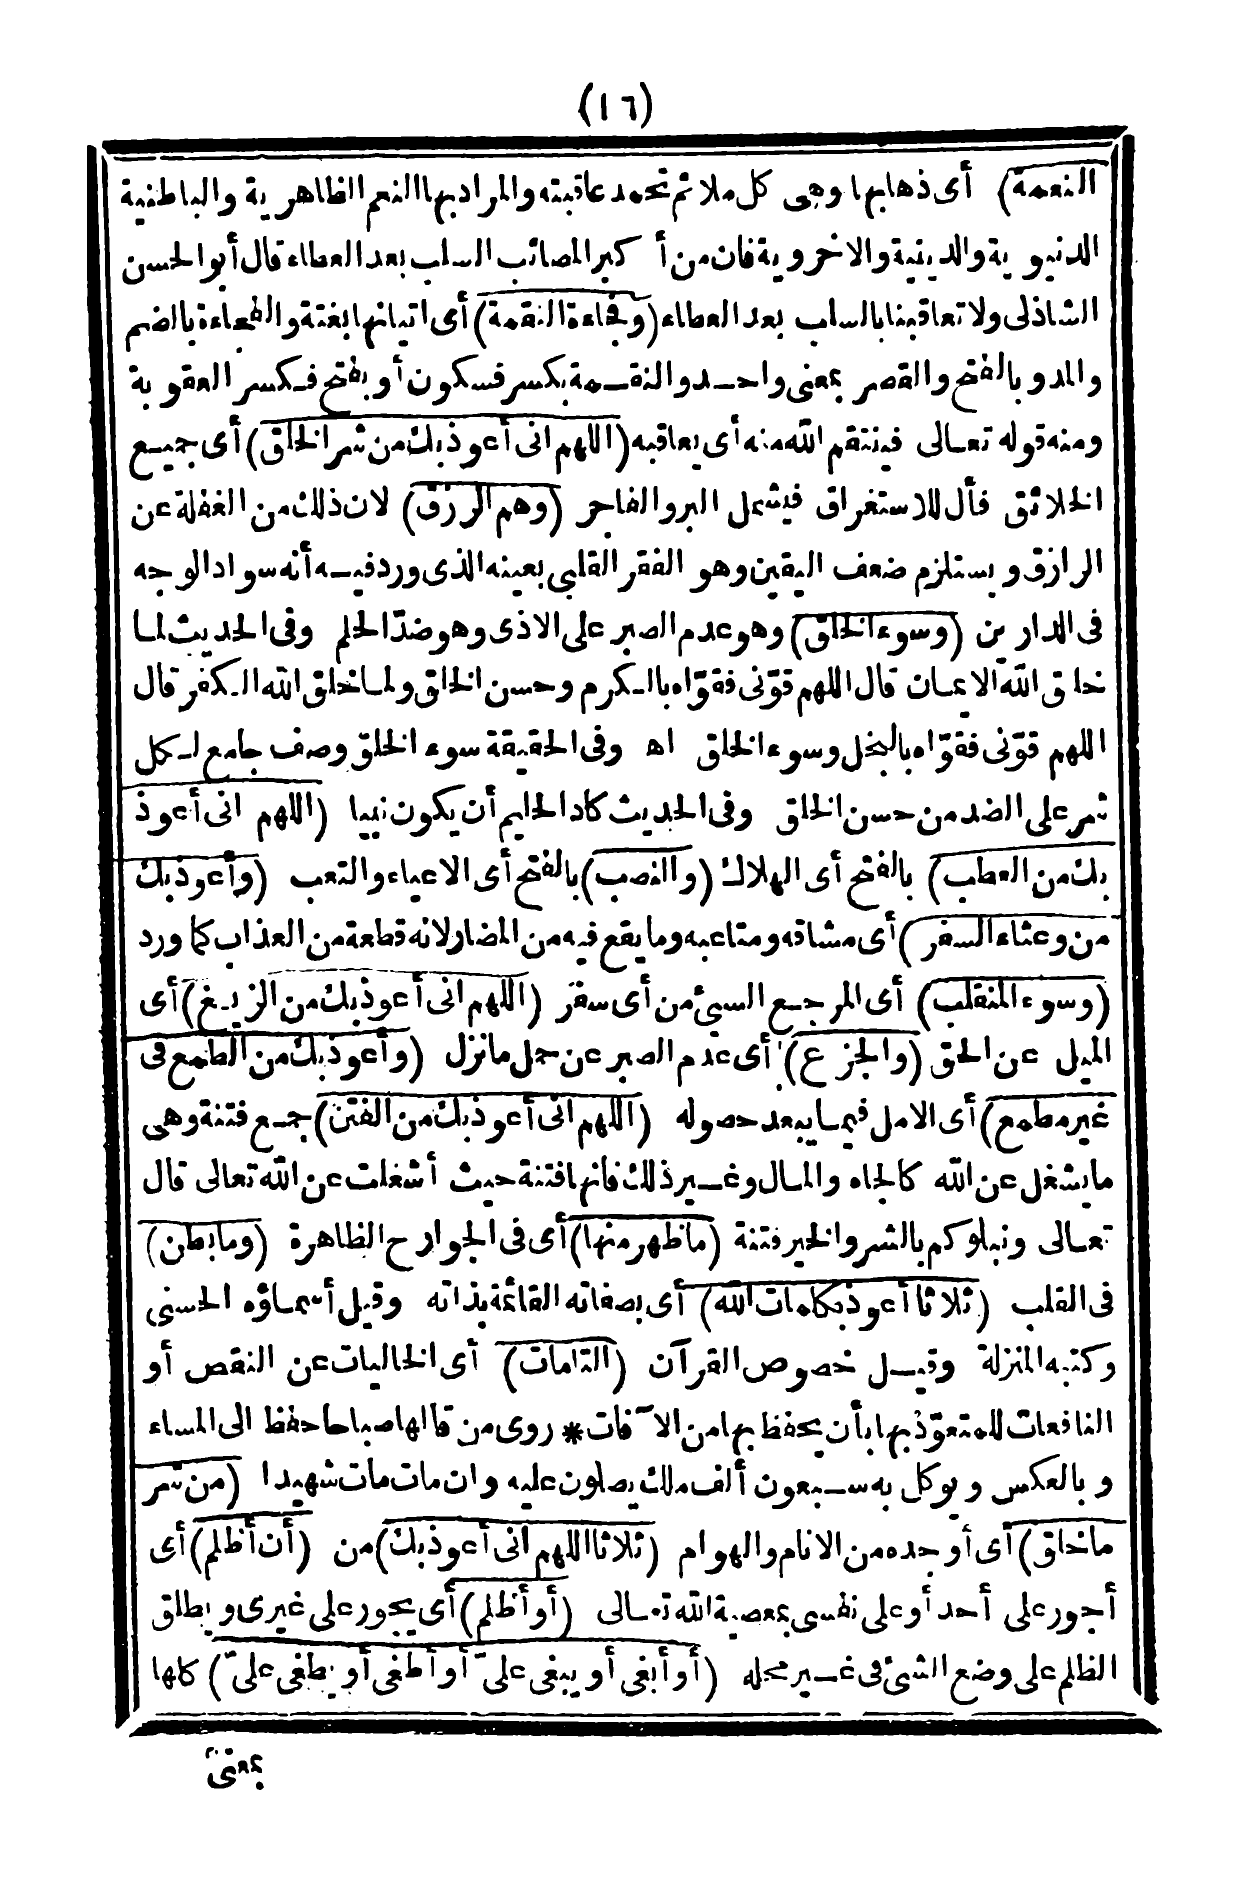 (١٦)
النعمة) أى ذهابها وهى كل ملائم تحمد عاقبته والمراد بها النعم الظاهرية والباطنية
الدنيوية والدينية والاخروية فان من أكبر المصائب السلب بعد العطاء قال أبو الحسن
الشاذلى ولا تعاقبنا بالسلب بعد العطاء (وفجاءة النقمة) أى اتيانها بغتة والفجاءة بالضم
والمد وبالفتح والقصر بمعنى واحد والنقمة بكسر فسكون أو بفتح فكسر العقوبة
ومنه قوله تعالى فينتقم الله منه أى يعاقبه (اللهم انى أعوذ بك من شر الخلق) أى جميع
الخلائق فأل للاستغراق فيشمل البر والفاجر (وهم الرزق) لان ذلك من الغفلة عن
الرازق ويستلزم ضعف اليقين وهو الفقر القلبى بعينه الذى ورد فيه أنه سواد الوجه
فى الدارين (وسوء الخلق) وهو عدم الصبر على الاذى وهو ضدّ الحلم وفى الحديث لما
خلق الله الايمان قال اللهم قوّنى فقوّاه بالكرم وحسن الخلق ولما خلق الله الكفر قال
اللهم قوّنى فقوّاه بالبخل وسوء الخلق اه وفى الحقيقة سوء الخلق وصف جامع لكل
شر على الضد من حسن الخلق وفى الحديث كاد الحليم أن يكون نبيا (اللهم انى أعوذ
بك من العطب) بالفتح أى الهلاك (والنصب) بالفتح أى الاعياء والتعب (وأعوذ بك
من وعثاء السفر) أى مشاقه ومتاعبه وما يقع فيه من المضار لانه قطعة من العذاب كما ورد
(وسوء المنقلب) أى المرجع السيئ من أى سفر (اللهم انى أعوذ بك من الزيغ) أى
الميل عن الحق (والجزع) أى عدم الصبر عن حمل ما نزل (وأعوذ بك من الطمع فى
غير مطمع) أى الامل فيما يبعد حصوله (اللهم انى أعوذ بك من الفتن) جمع فتنة وهى
ما يشغل عن الله كالجاه والمال وغير ذلك فأنها فتنة حيث أشغلت عن الله تعالى قال
تعالى ونبلوكم بالشر والخير فتنة (ما ظهر منها) أى فى الجوارح الظاهرة (وما بطن)
فى القلب (ثلاثا أعوذ بكلمات الله) أى بصفاته القائمة بذاته وقيل أسماؤه الحسنى
وكتبه المنزلة وقيل خصوص القرآن (التامات) أى الخاليات عن النقص أو
النافعات للمتعوّذ بها بأن يحفظ بها من الآفات * روى من قالها صباحا حفظ الى المساء
وبالعكس ويوكل به سبعون ألف ملك يصلون عليه وان مات مات شهيدا (من شر
ما خلق) أى أوجده من الانام والهوام (ثلاثا اللهم انى أعوذ بك) من (أن أظلم) أى
أجور على أحد أو على نفسى بمعصية الله تعالى (أو أظلم) أى يجور على غيرى ويطلق
الظلم على وضع الشئ فى غير محله (أو أبغى أو يبغى علىّ أو أطغى أو يطغى علىّ) كلها
بمعنى